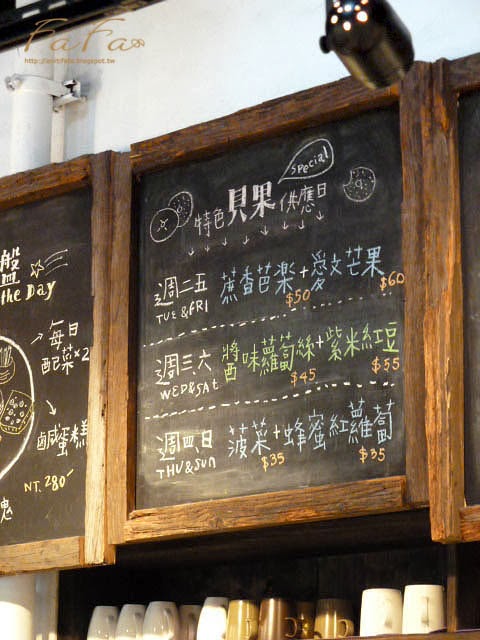 FaFa
http://anrbfafa.blogspot.tw
盤
the Day
每日
配菜×2
鹹蛋糕
NT. 280
special
特色貝果供應日
週二五 蔗香芭樂+愛文芒果
TUE & FRI $50 $60
週三六 醬味蘿蔔絲+紫米紅豆
WED & Sat $45 $55
週四日 菠菜+蜂蜜紅蘿蔔
THU & Sun $35 $35